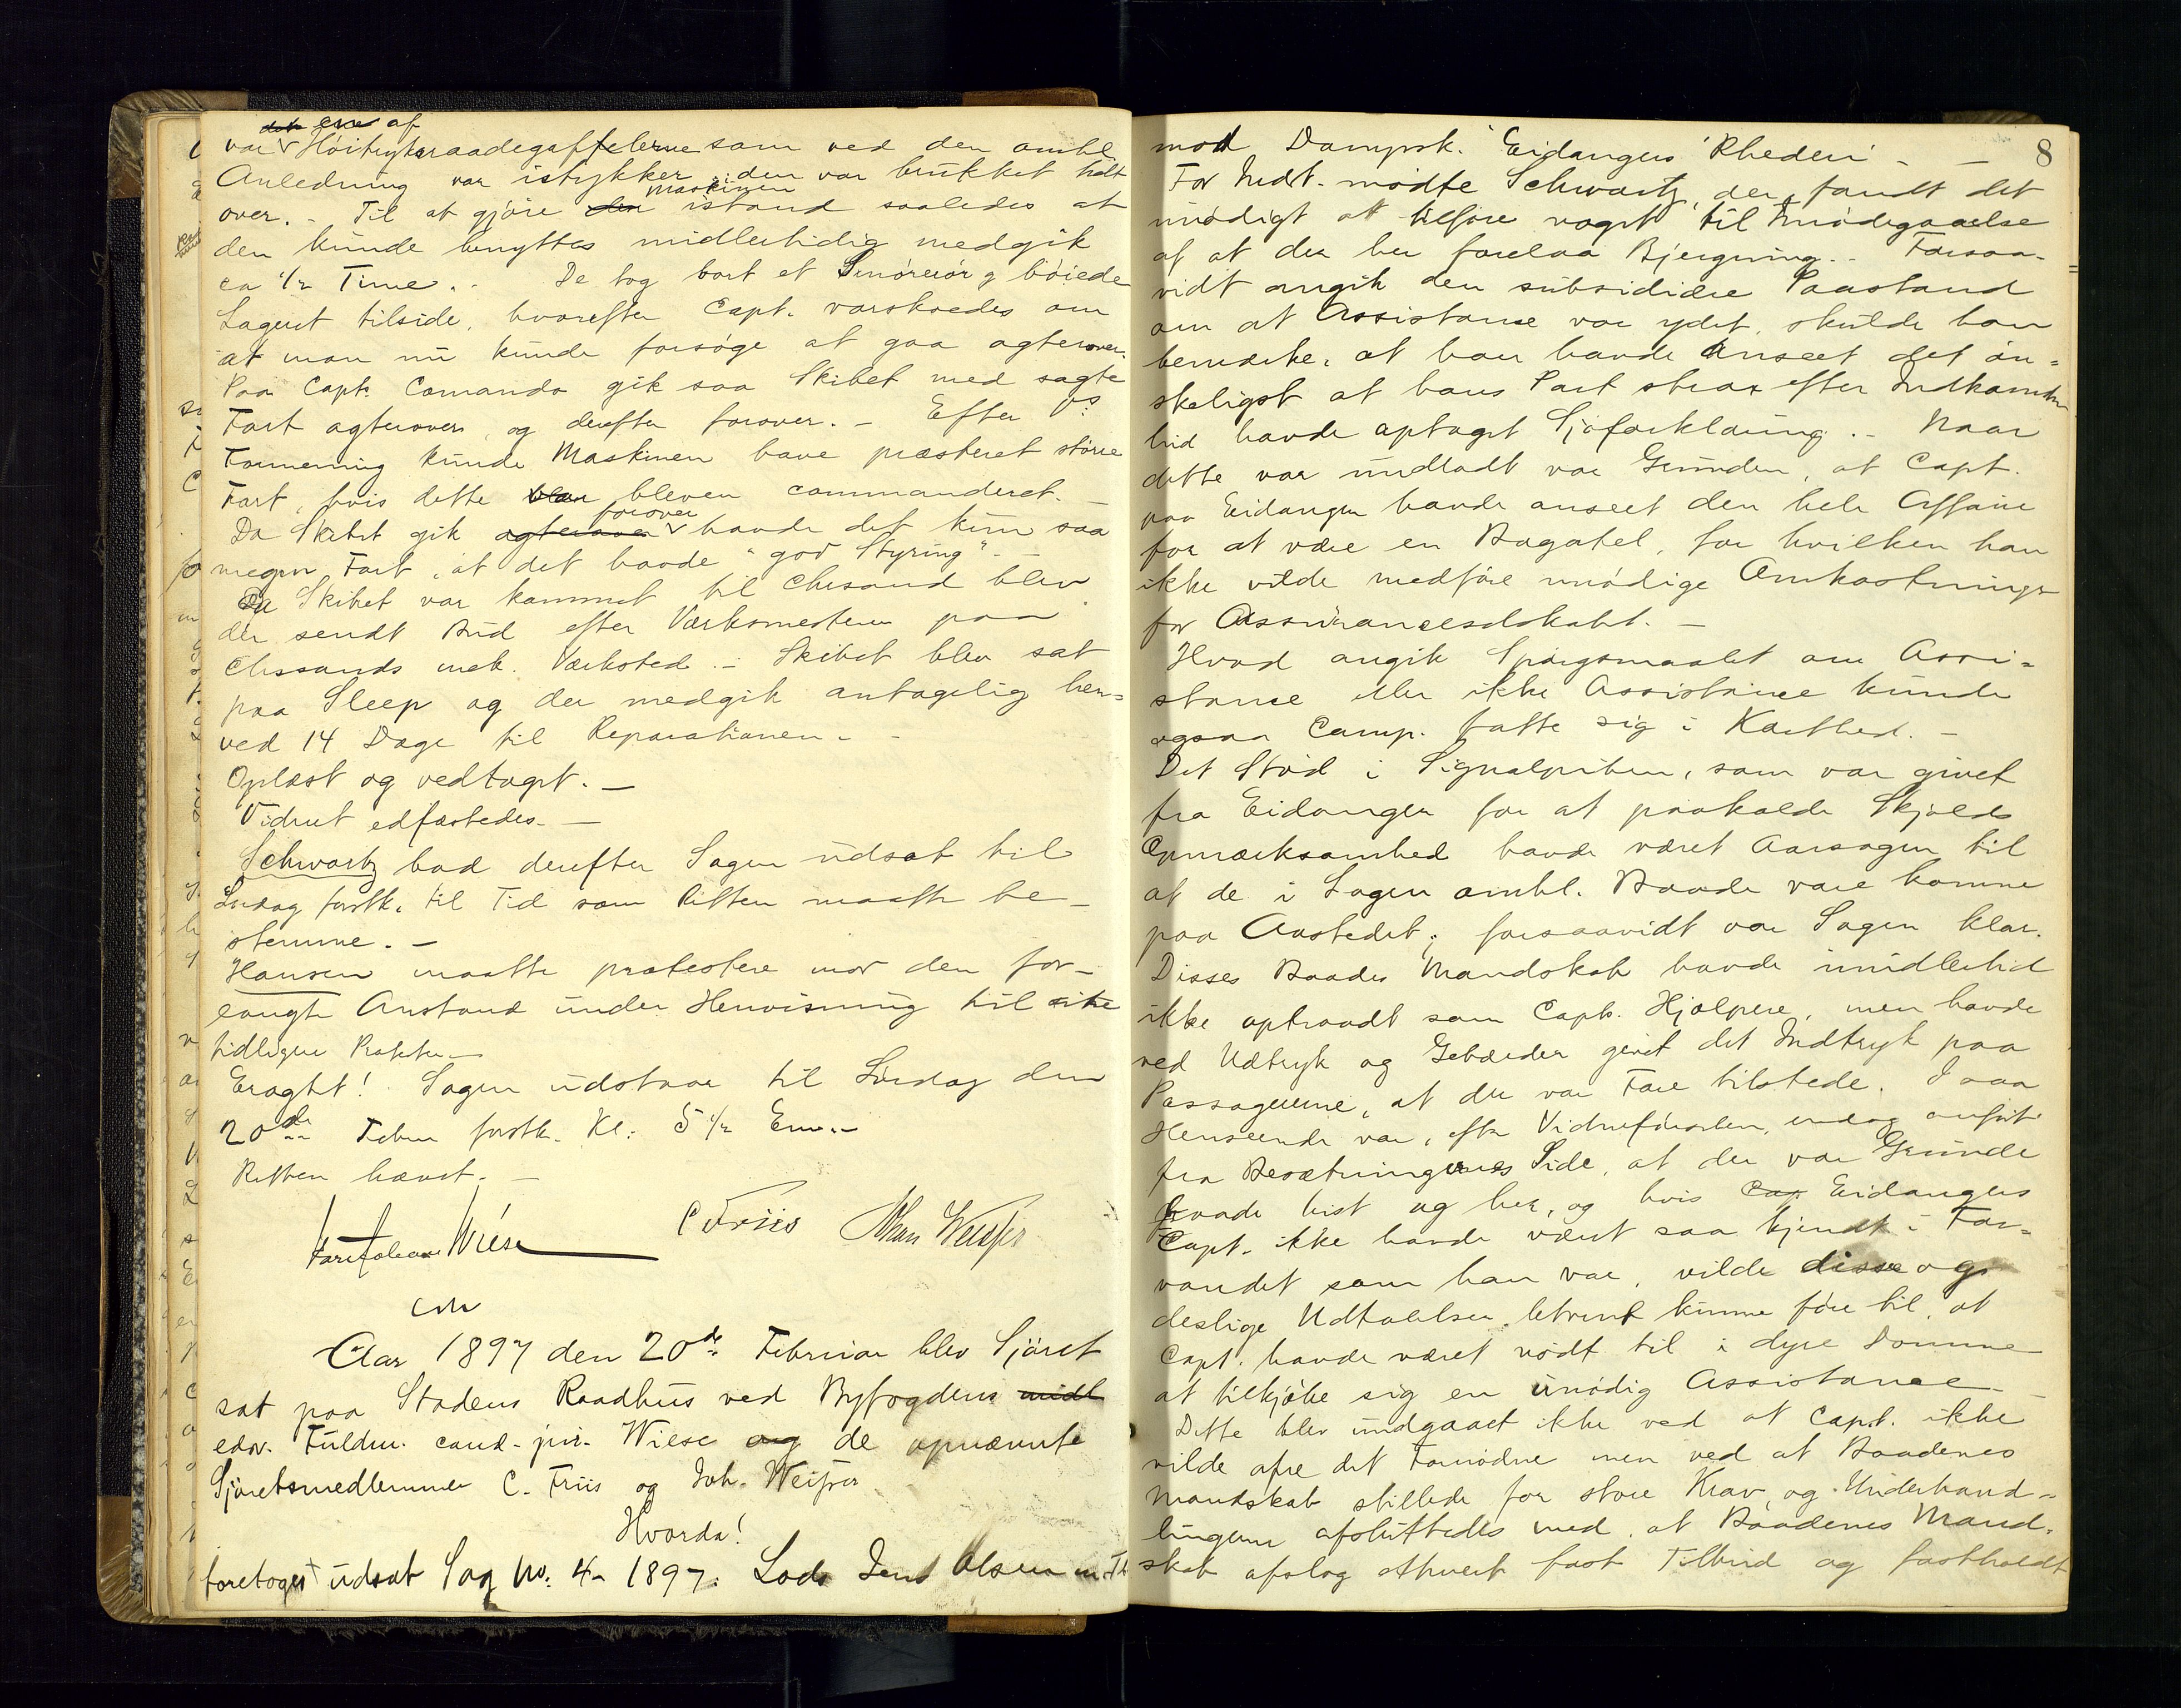 den ene af
var Høitryksraadegaffelerne som ved den omhl.
Anledning var istykker; den var brukket tvdt
over. - Til at gjøre den maskinen istand saaledes at
den kunde benyttes midlertidig medgik
ca 1/2 Time. - De tog bort et Smørerør g bøiede
Lageret tilside, hvorefter Capt. varskoedes om
at man nu kunde forsøge at gaa agterover.
Paa Capt. Comando gik saa Skibet med sagte
Fart agterover, og derefter forover. - Efter Vs
Formening kunde Maskinen have præsteret større
Fart, hvis dette blev bleven commanderet. -
Da Skibet gik agterover forover havde det kun saa
megen Fart, at det havde "god Styring". -
Da Skibet var kommet til Chrsand blev
der sendt Bud efter Værksmesteren paa
Chrssands mek. Værksted. - Skibet blev sat
paa Sleep og der medgik antagelig hen-
ved 14 Dage til Reparationen. -
Oplæst og vedtaget. -
Vidnet edfæstedes. -
Schwartz bad derefter Sagen udsat til
Lørdag førstk. til Tid som Retten maatte be-
stemme. -
Hansen maatte protestere mod den for-
langte Anstand under Henvisning til sine
tidligere Protester. -
Eragtet! Sagen udstaar til Lørdag den
20de Febru førstk. Kl. 5 1/2 Em. -
Retten hævet. -
Wiese C Friis Johan Weisser
Aar 1897 den 20de Februar blev Sjøret
sat paa Stadens Raadhus ved Byfogdens midl
edsv. Fuldm. cand. jur. Wiese og de opnævnte
Sjøretsmedlemmer C. Friis og Joh. Weisser
Hvorda!
foretoges udsat Sag No. 4 - 1897: Lods Jens Olsen m. Fl
8
mod Dampsk. "Eidangers" Rhederi - -
For Indst. mødte Schwartz, der fandt det
unødigt at tilføre noget til Imødegaaelse
af at der her forelaa Bjergning. - Forsaa-
vidt angik den subsidiære Paastand
om at Assistance var ydet, skulde han
bemærke, at han havde anseet det øn-
skeligst at hans Part strax efter Indkomsten
hid havde optaget Sjøforklaring. - Naar
dette var undladt var Grunden, at Capt.
paa Eidanger havde anseet den hele Affaire
for at være en Bagatel, for hvilken han
ikke vilde medføre unødige Omkostninger
for Assuranceselskabet. -
Hvad angik Spørgsmaalet om Assi-
stance eller ikke Assistance kunde
ogsaa Comp. fatte sig i Korthed. -
Det Stød i Signalpiben, som var givet
fra Eidanger for at paakalde Skjolds
Opmærksomhed havde været Aarsagen til
at de i Sagen omhl. Baade vare komne
paa Aastedet; forsaavidt var Sagen klar.
Disses Baades Mandskab havde imidlertid
ikke optraadt som Capt. Hjælpere, men havde
ved Udtryk og Gebærder givet det Indtryk paa
Passagererne, at der var Fare tilstede. I saa
Henseende var, efter Vidneførselen, endog anført
fra Besætningernes Side, at der var Grunde
baade hist og her, og hvis Cap Eidangers
Capt. ikke havde været saa kjendt i Far-
vandet som han var, vilde disse og
deslige Udtalelser letvint kunne føre til, at
Capt. havde været nødt til i dyre Domme
at tilkjøbe sig en unødig Assistance. -
Dette blev undgaaet ikke ved at Capt. ikke
vilde ofre det Fornødne men ved at Baadenes
Mandskab stillede for store Krav, og Underhand-
lingerne afsluttedes med, at Baadenes Mand-
skab afslog ethvert fast Tilbud og fastholdt